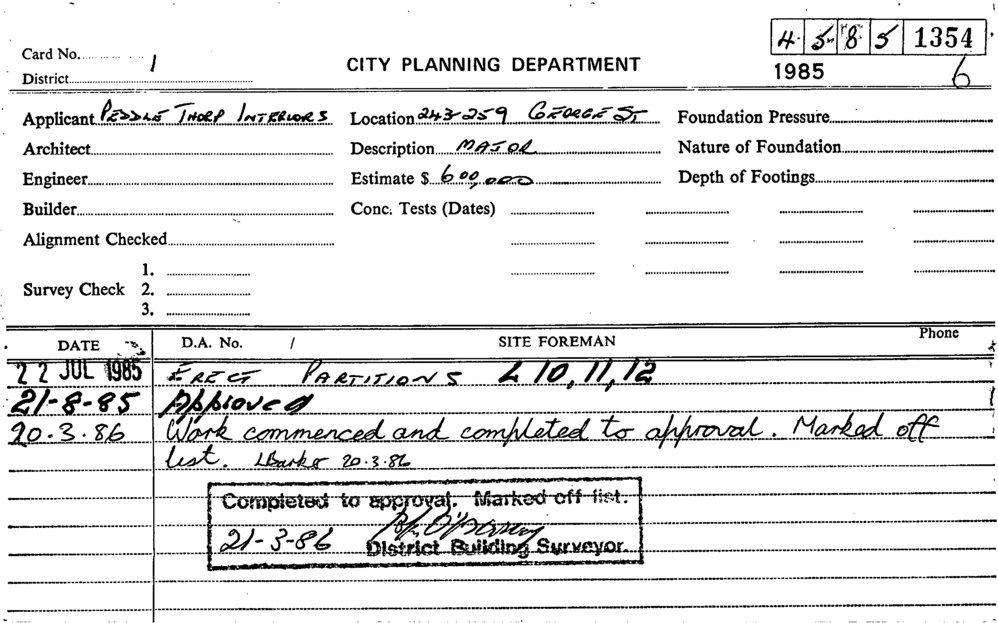 4 5 8 5 1354
Card No. 1
CITY PLANNING DEPARTMENT
1985 6
District
Applicant PEDDLE THORP INTERIORS Location 243-259 GEORGE ST Foundation Pressure
Architect Description MAJOR Nature of Foundation
Engineer Estimate $ 600,000 Depth of Footings
Builder Conc. Tests (Dates)
Alignment Checked
1.
Survey Check 2.
3.
DATE D.A. No. / SITE FOREMAN Phone
22 JUL 1985 ERECT PARTITIONS L 10, 11, 12
21-8-85 Approved
20.3.86 Work commenced and completed to approval. Marked off
list. 20.3.86
Completed to approval. Marked off list.
21-3-86
District Building Surveyor.